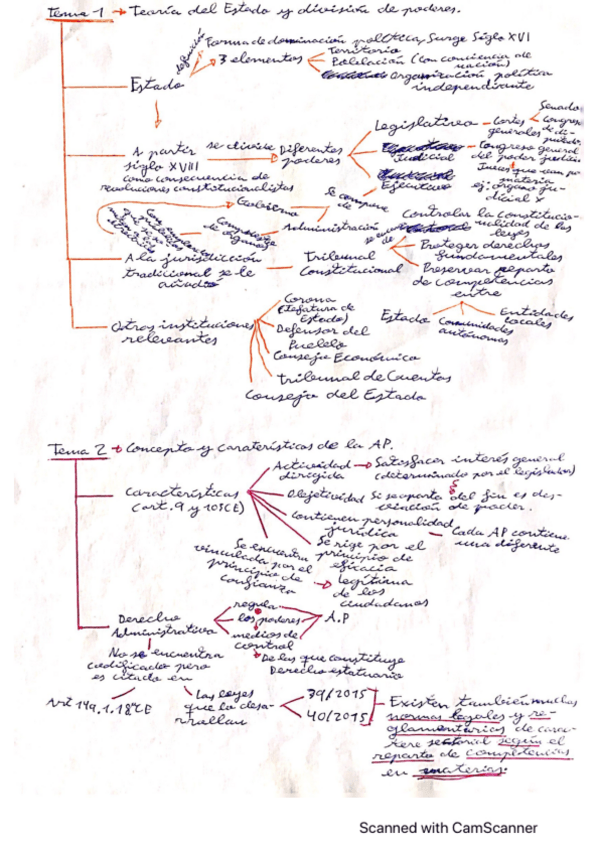 Tema 1 → Teoría del Estado y división de poderes.
Estado
definición
Forma de dominación política, Surge Siglo XVI
3 elementos
Territorio
Población (con conciencia de
nación)
Organización política
independiante
A partir
siglo XVIII
como consecuencia de
revoluciones constitucionalistas
se divide
Diferentes
poderes
Legislativo
Cortes
generales
Senado
Congreso
de di-
putados
Judicial
Congreso general
del poder judicial
Jueces que
materia
ej: órgano ju-
dicial X
Ejecutivo
se compone
de
Gobierno
Administración
A la jurisdicción
tradicional se le
añade
Tribunal
Constitucional
se encarga
de
Controlar la constitucio-
nalidad de las
leyes
Proteger derechos
fundamentales
Preservar reparto
de competencias
entre
Estado
Comunidades
autónomas
Entidades
locales
Otras instituciones
relevantes
Corona
(Jefatura de
Estado)
Defensor del
Pueblo
Consejo Económico
Tribunal de Cuentas
Consejo del Estado
Tema 2 → Concepto y caraterísticas de la AP.
Características
(art. 9 y 103CE)
Actividad
dirigida
Satisfacer interés general
(determinado por el legislador)
Objetividad
Si se aparta del fin es des-
viación de poder.
Contienen personalidad
jurídica
Cada AP contiene
una diferente
Se rige por el
principio de
eficacia
Se encuentra
vinculada por el
principio de
confianza
legítima
de los
ciudadanos
Derecho
Administrativo
regula
los poderes
medios de
control
A.P
De las que constituye
Derecho estatuario
No se encuentra
codificado pero
es citado en
Art 149.1.18ªCE
Las leyes
que la desa-
rrollan
39/2015
40/2015
Existen también muchas
normas legales y re-
glamentarias de cara-
tere sectorial según el
reparto de competencias
en materias.
Scanned with CamScanner